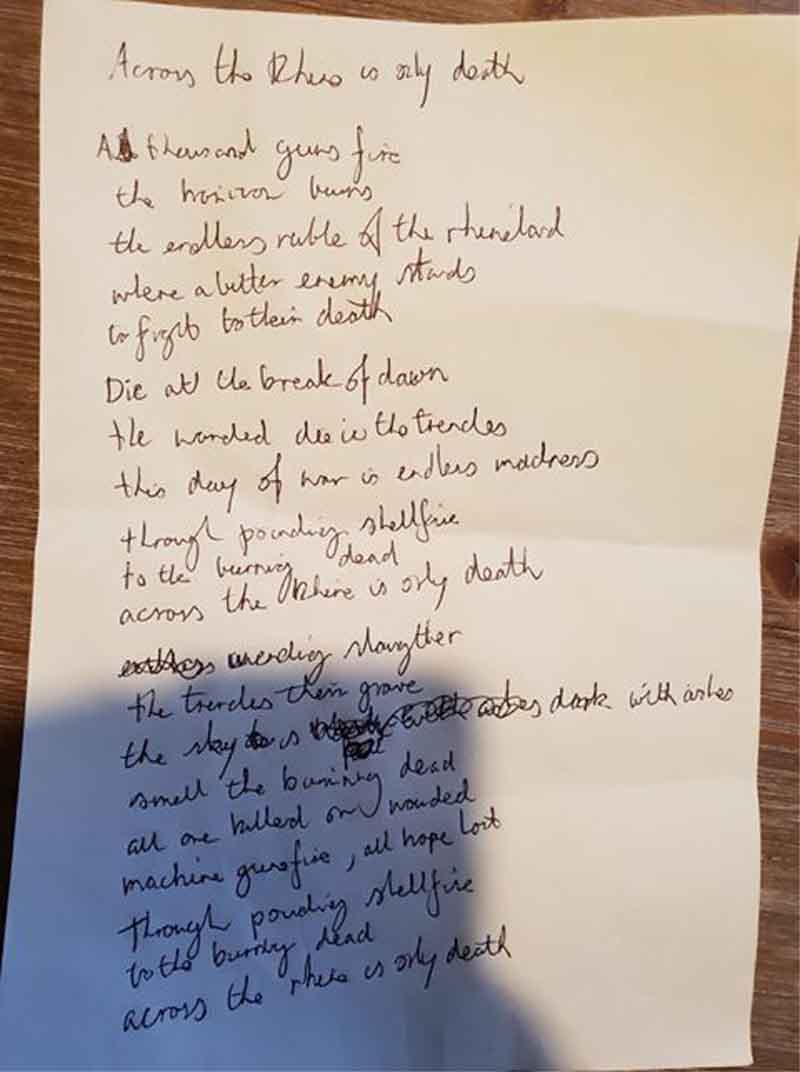 Across the Rhine is only death
A thousand guns fire
the horizon burns
the endless ruble of the rhineland
where a bitter enemy stands
to fight to their death
Die at the break of dawn
the wonded die in the trenches
this day of war is endless madness
through pounding shellfire
to the burning dead
across the Rhine is only death
unending slaugther
the trenches their grave
the sky is dark with ashes
smell the burning dead
all are killed or wouded
machine gunsfire, all hope lost
through pouding shellfire
to the burning dead
across the rhine is only death